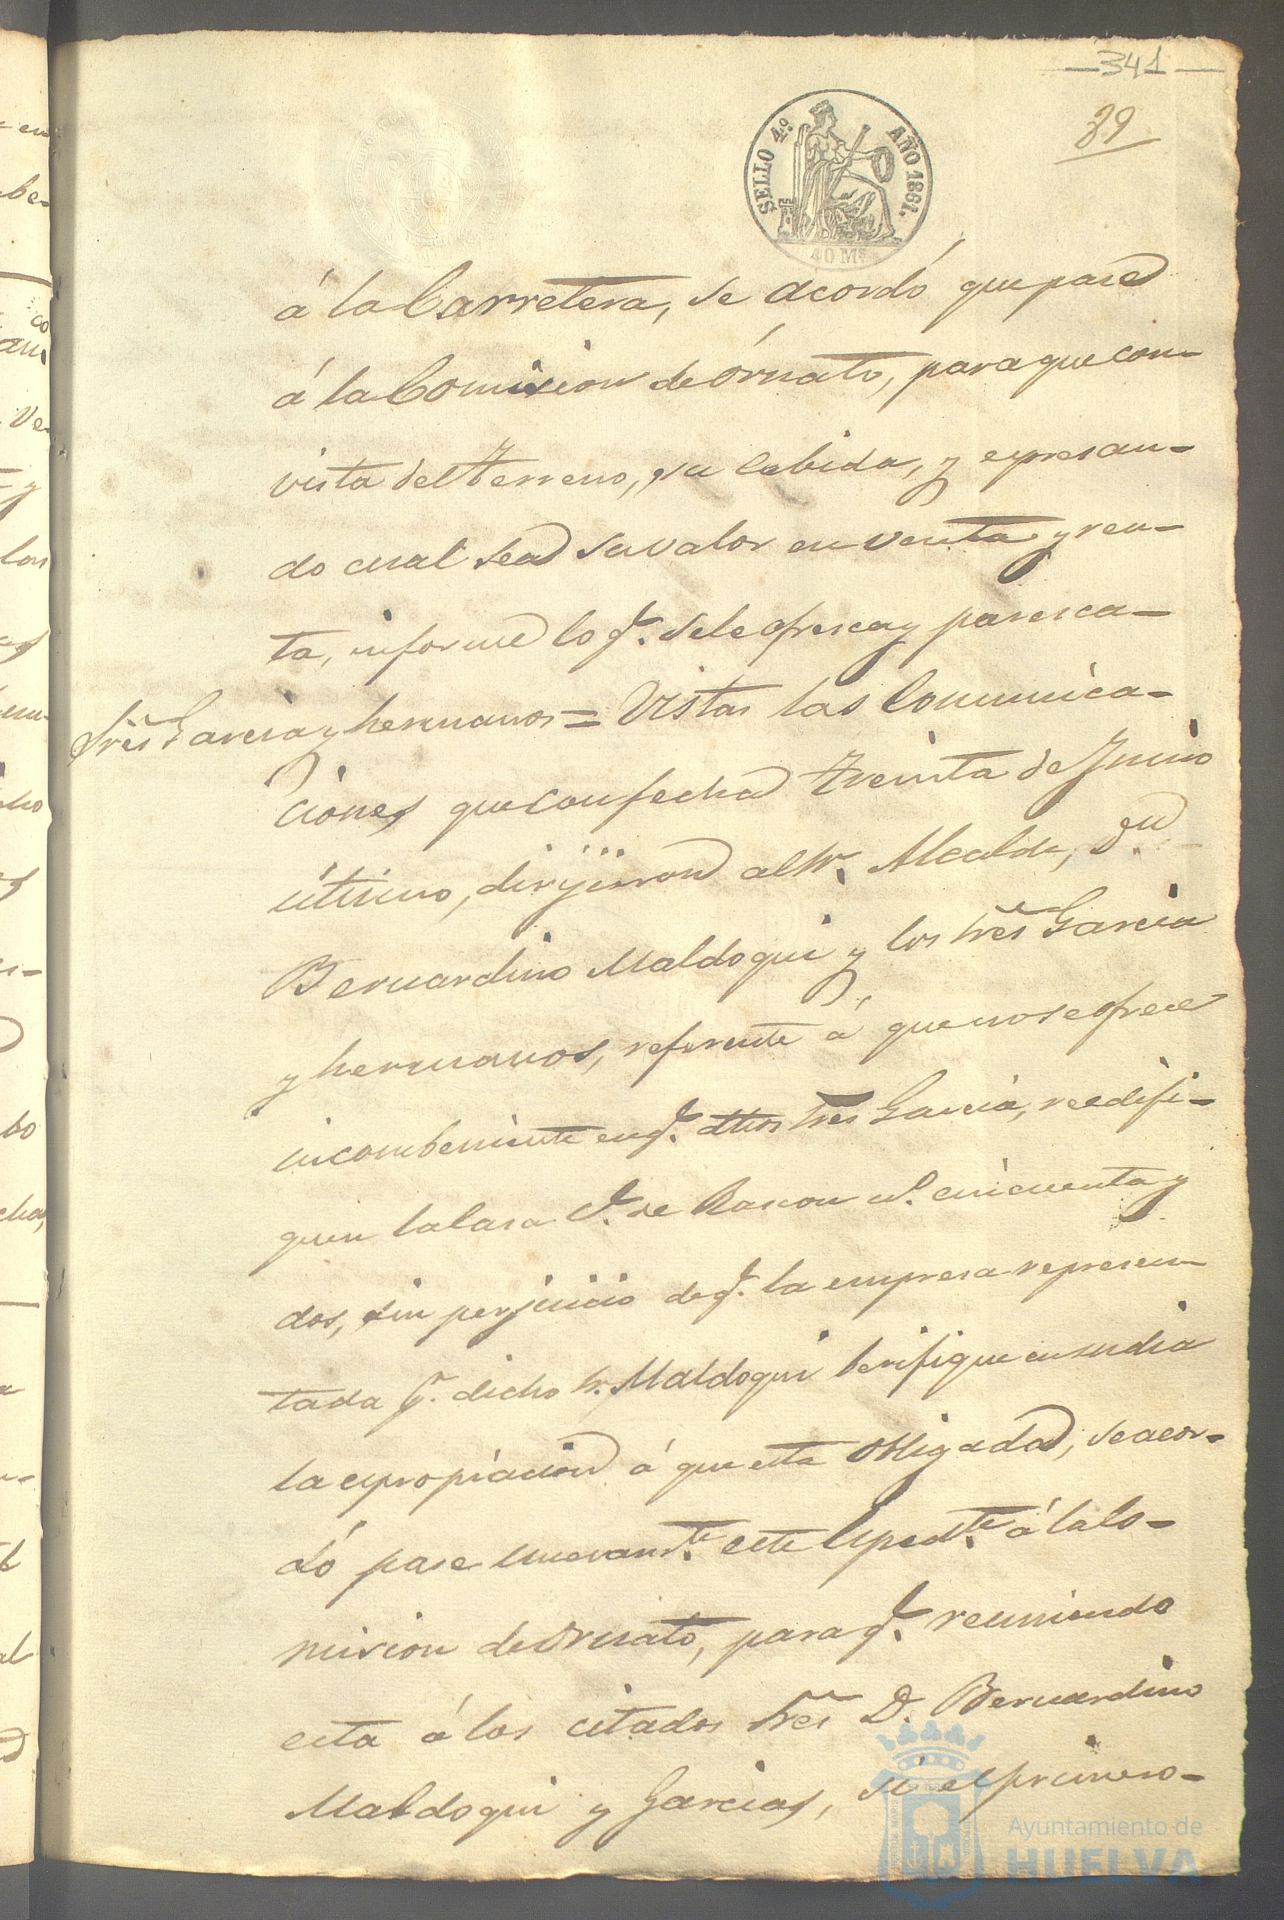 341
39
SELLO 4.º AÑO 1861.
40 Ms
á la Carretera, se acordó que pase
á la Comision de Ornato, para que con
vista del terreno, su cabida, y expresan-
do cual sea su valor en venta y ren-
ta, informe lo q.e se le ofresca y paresca -
Sres Garcia y hermanos = Vistas las Comunica-
ciones que con fecha treinta de Junio
último, dirijieron al Sr. Alcalde, D.n
Bernardino Maldoqui y los Sres Garcia
y hermanos, referente á que no se ofrece
incombeniente en q.e dhos Sres Garcia, reedifi-
quen la casa C.e de Rascon n.o cincuenta y
dos, sin perjuicio de q.e la empresa represen
tada p.r dicho Sr. Maldoqui berifique en su dia
la expropiacion á que esta obligada, se acor-
dó pase nuevam.te este Exped.te á la Co-
mision de Ornato, para q.e reuniendo
esta á los citados Sres D. Bernardino
Maldoqui y Garcias, si el primero -
Ayuntamiento de
HUELVA